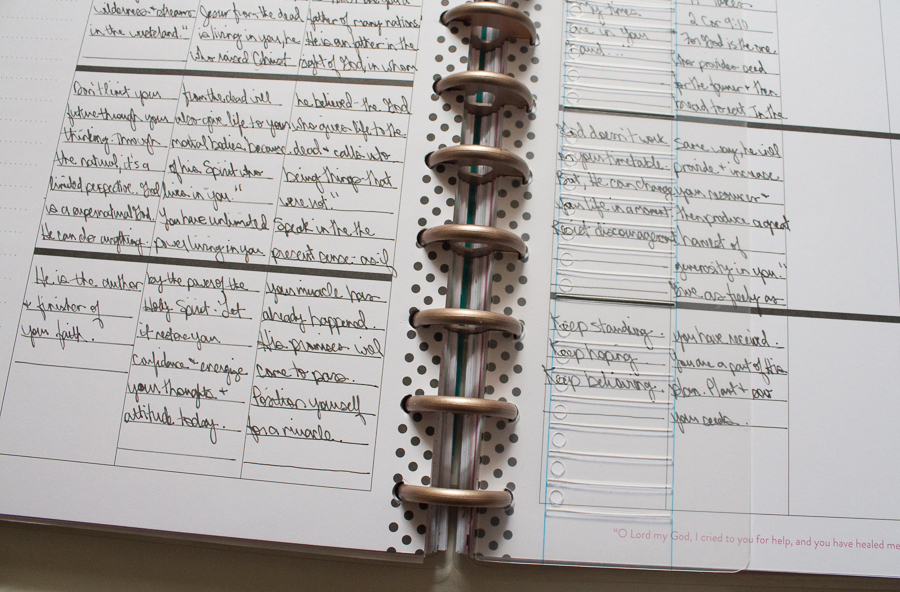 wilderness & streams
in the wasteland."
Don't limit your
future through your
thinking. Through
the natural, it's a
limited perspective. God
is a supernatural God.
He can do anything.
He is the author
& finisher of
your faith.
your from the dead
is living in you, he
who raised Christ
from the dead will
also give life to your
mortal bodies, because
of his Spirit who
lives in you."
You have unlimited
power living in you
by the power of the
Holy Spirit. Let
it restore you
confidence & energize
your thoughts &
attitude today.
father of many nations
He is our father in the
sight of God, in whom
he believed - the God
who gives life to the
dead & calls into
being things that
were not."
Speak in the the
present tense - as if
your miracle has
already happened.
His promises will
come to pass.
Position yourself
for a miracle.
My times
are in your
hand...
God doesn't work
on your timetable.
But, He can change
your life in a moment.
discouragement
Keep standing.
Keep hoping
Keep believing.
2 Cor 9:10
For God is the one
who provides seed
for the farmer & then
bread to eat. In the
same way he will
provide & increase
your resources &
then produce a great
harvest of
generosity in you."
Give as freely as
you have received.
You are a part of His
plan. Plant & sow
your seeds.
"O Lord my God, I cried to you for help, and you have healed me